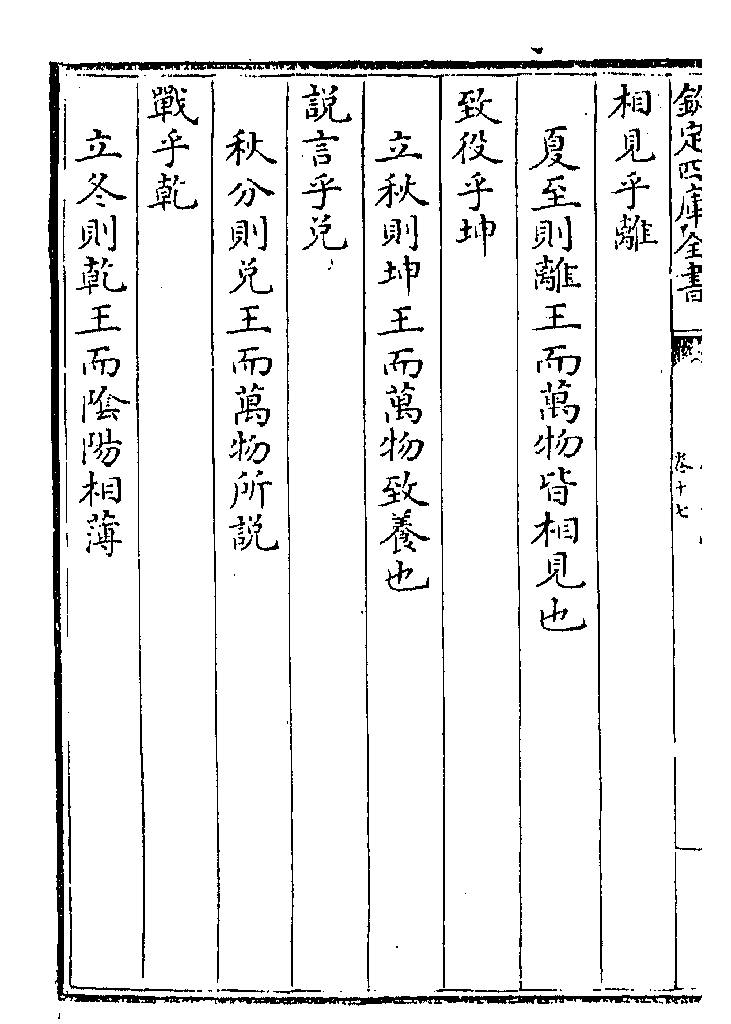 欽定四庫全書
卷十七
相見乎離
夏至則離王而萬物皆相見也
致役乎坤
立秋則坤王而萬物致養也
說言乎兑
秋分則兑王而萬物所說
戰乎乾
立冬則乾王而陰陽相薄